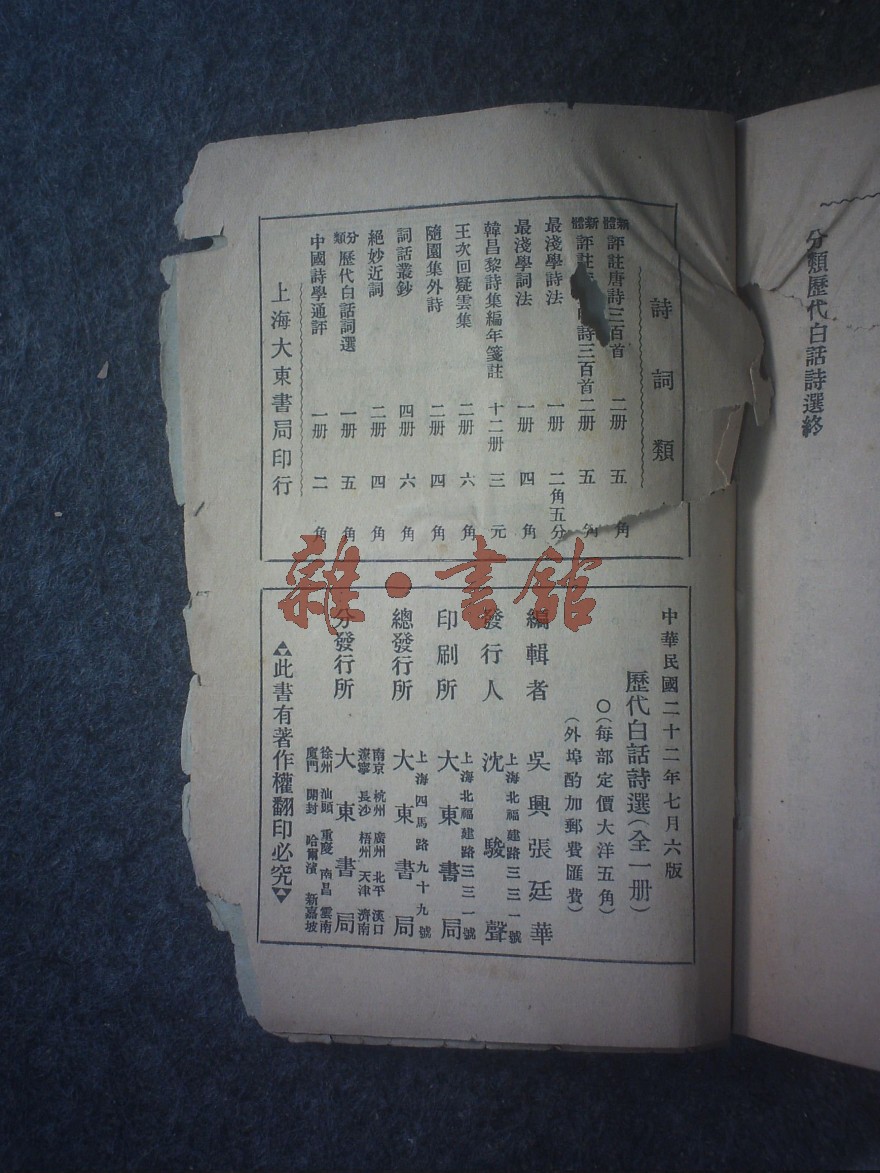 分類歷代白話詩選終
詩詞類
新體評註唐詩三百首 二册 五角
新體評註 詩三百首 二册 五角
最淺學詩法 一册 二角五分
最淺學詞法 一册 四角
韓昌黎詩集編年箋註 十二册 三元
王次回疑雲集 二册 六角
隨園集外詩 二册 四角
詞話叢鈔 四册 六角
絕妙近詞 二册 四角
分類歷代白話詞選 一册 五角
中國詩學通評 一册 二角
上海大東書局印行
中華民國二十二年七月六版
歷代白話詩選(全一册)
〇(每部定價大洋五角)
(外埠酌加郵費匯費)
編輯者 吳興張廷華
發行人 上海北福建路三三一號 沈駿聲
印刷所 上海北福建路三三一號 大東書局
總發行所 上海四馬路九十九號 大東書局
分發行所 大東書局
南京 杭州 廣州 北平 漢口
遼寧 長沙 梧州 天津 濟南
徐州 汕頭 重慶 南昌 雲南
廈門 開封 哈爾濱 新嘉坡
此書有著作權翻印必究
雜·書館